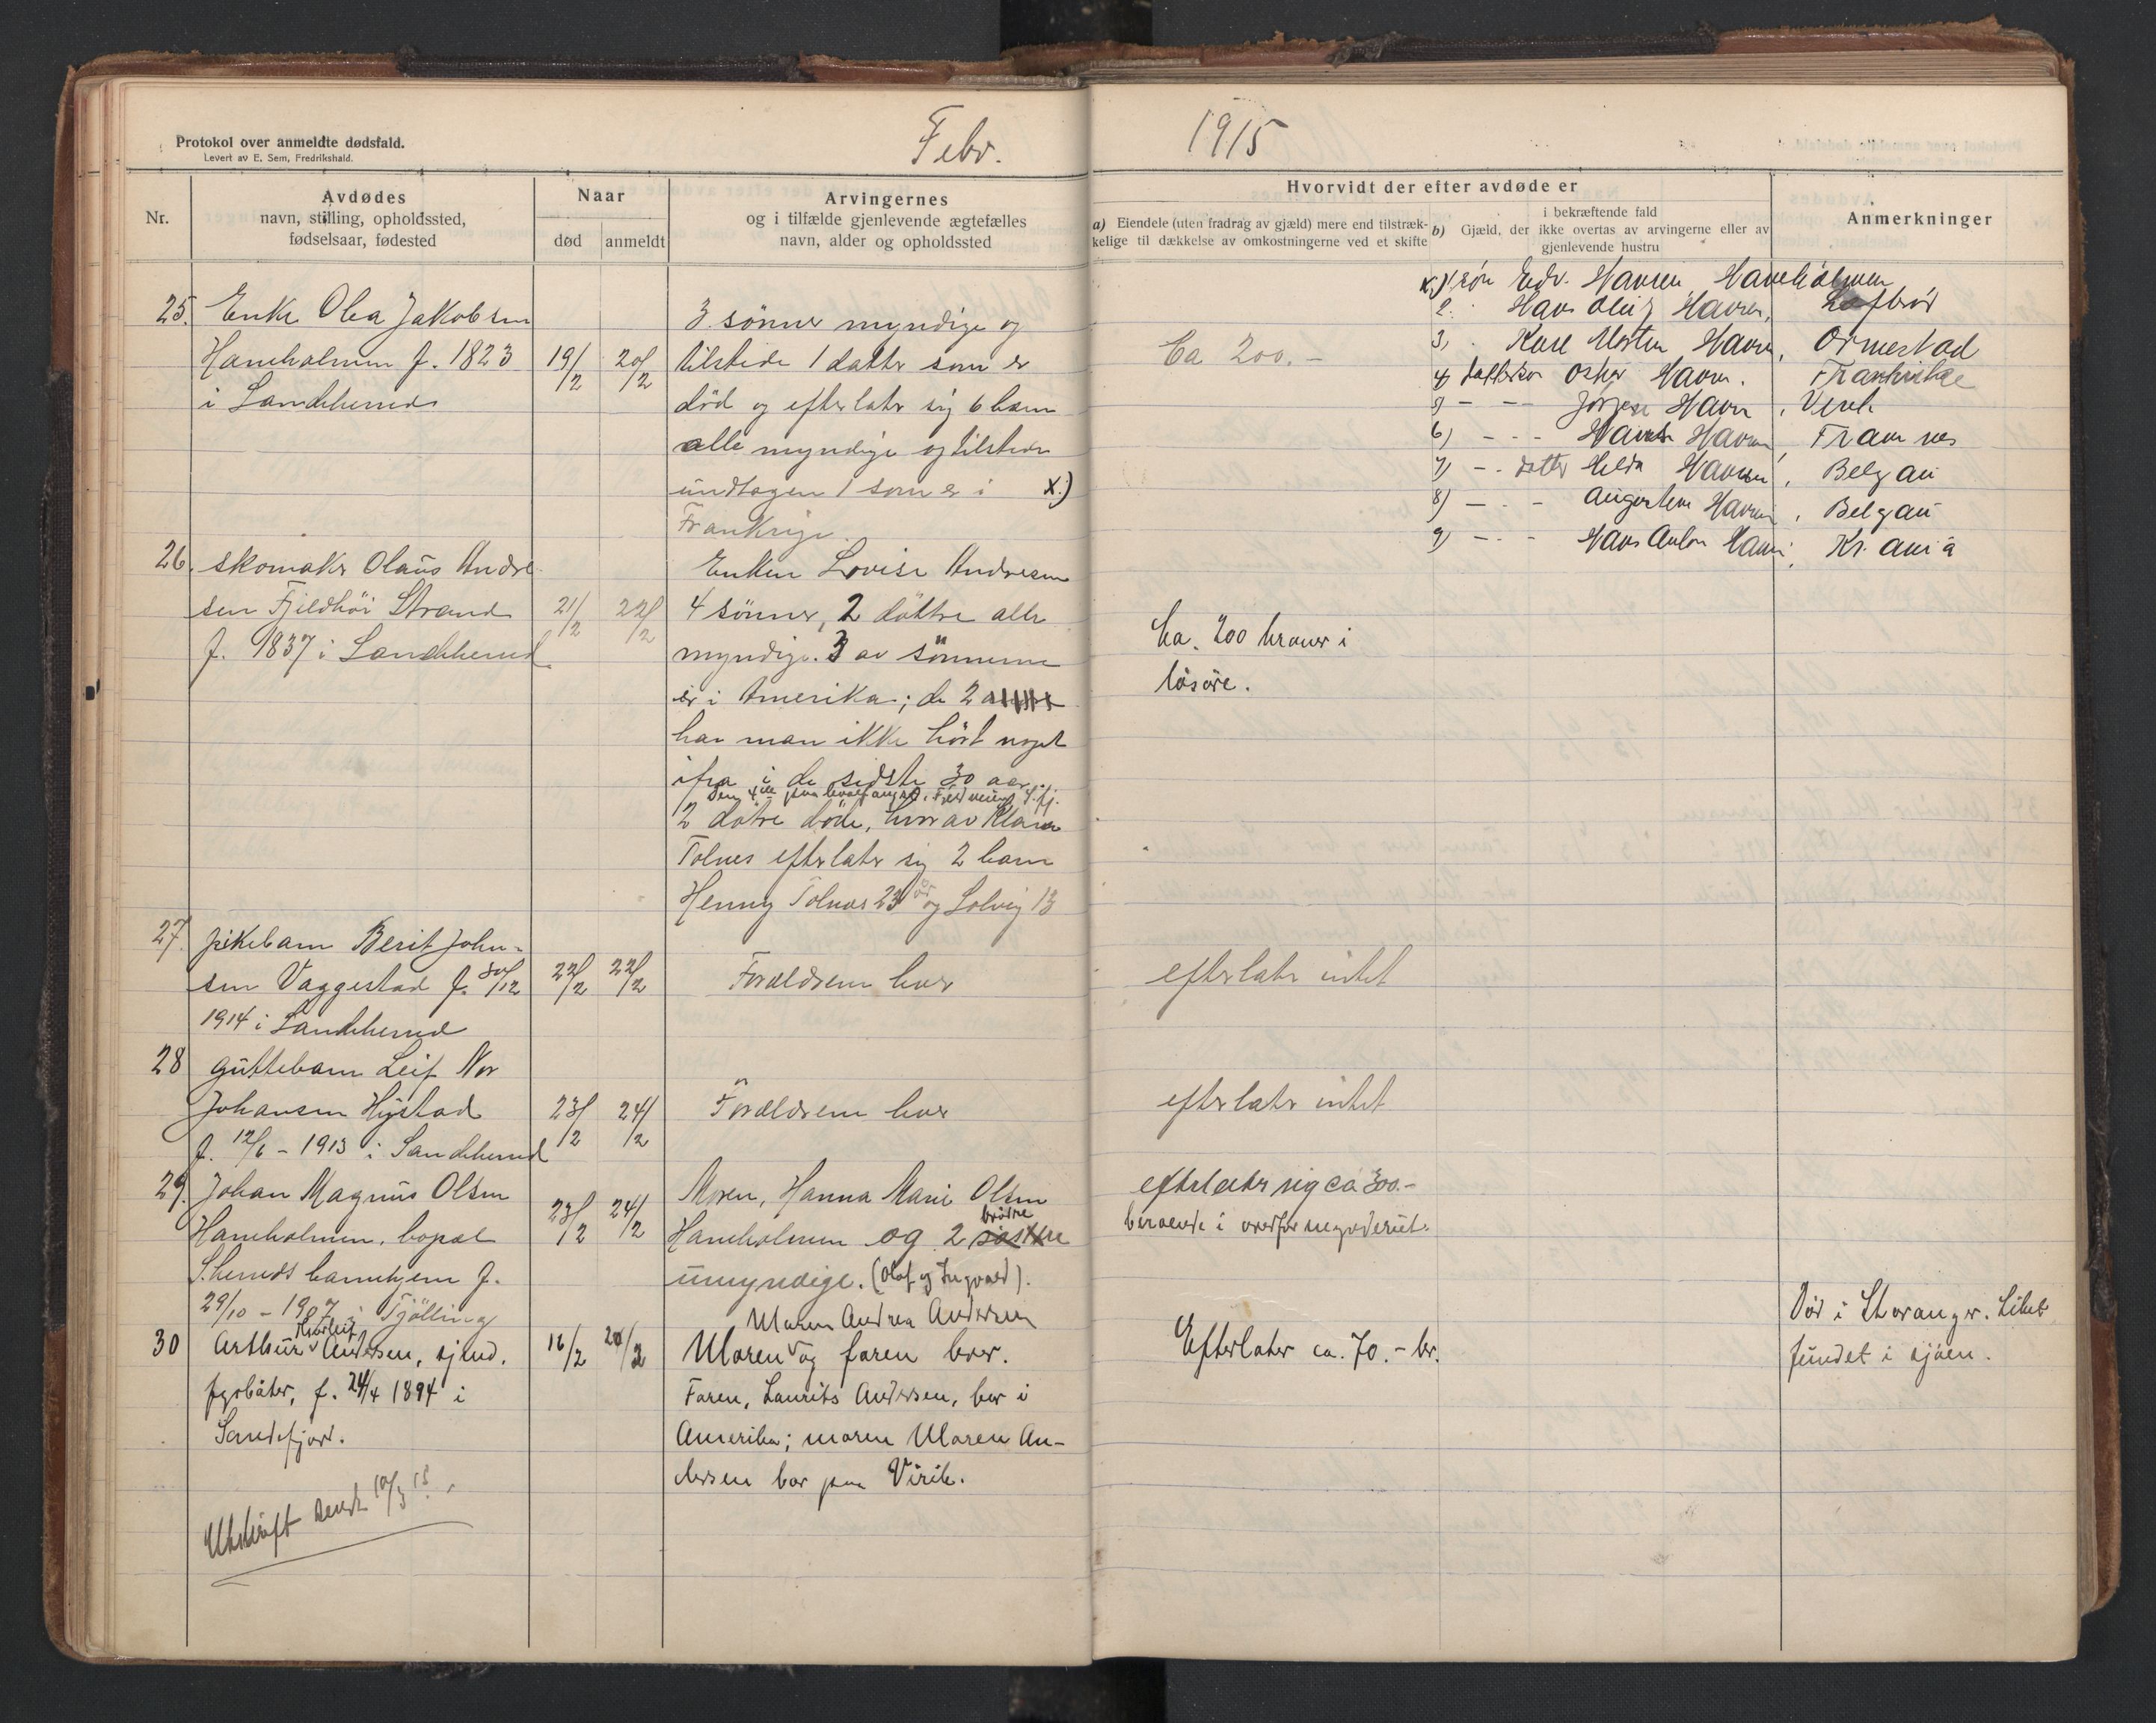 Febr.
1915
Protokol over anmeldte dødsfald.
Levert av E. Sem, Fredrikshald.
Nr.
Avdødes
navn, stilling, opholdssted,
fødselsaar, fødested
Naar
død
anmeldt
Arvingernes
og i tilfælde gjenlevende ægtefælles
navn, alder og opholdssted
Hvorvidt der efter avdøde er
a) Eiendele (uten fradrag av gjæld) mere end tilstræk-
kelige til dækkelse av omkostningerne ved et skifte
i bekræftende fald
b) Gjæld, der ikke overtas av arvingerne eller av
gjenlevende hustru
Anmerkninger
25. Enke Olea Jakobsen
Haneholmen f. 1823
i Sandeherred
19/2
20/2
3 sønner myndige og
tilstede 1 datter som er
død og efterlater sig 6 barn
alle myndige og tilstede
undtagen 1 som er i x.)
Frankrige.
Ca 200.-
x.) søn Edv. Hansen Haneholmen
2. Hans Hansen,
3, Karl Morten Hansen, Ormestad
4) dattersøn Oskar Hansen. Frankrike
5) - -- Jørgen Hansen, Virik
6) - - - Hansen, Framnes
7) - - datter Hilda Hansen, Belgau
8) - - - Augustine Hansen, Belgau
9) - - - Hans Anton Hansen, Kr.ania
26. skomaker Olaus Andre-
sen Fjeldhøi Strand
f. 1837 i Sandeherred.
21/2
22/2
Enken Lovise Andresen
4 sønner, 2 døttre alle
myndige. 3 av sønnerne
er i Amerika; de 2
har man ikke hørt noget
ifra i de sidste 30 aar.
Den 4de paa hvalfangst
2 døtre døde, hvorav Klara
Tolnes efterlater sig 2 barn
Henny Tolnes 23 år og Solveig 13
Ca. 200 kroner i
løsøre.
27. pikebarn Berit John-
sen Vaggestad f. 30/12
1914 i Sandeherred
22/2
22/2
Forældrene lever
efterlater intet
28 guttebarn Leif Nor
Johansen Hystad
f. 12/6 - 1913 i Sandeherred
23/2
24/2
Forældrene lever
efterlater intet
29. Johan Magnus Olsen
Haneholmen, bopæl
S.herreds barnehjem f.
29/10 - 1907 i Tjølling
23/2
24/2
Moren, Hanna Marie Olsen
Haneholmen og 2 søstre brødre
umyndige. (Olaf og Ingvald).
efterlater sig ca 300.-
beroende i overformynderiet.
30 Arthur Andersen, sjmd.
fyrbøter, f. 24/4 1894 i
Sandefjord.
16/2
Maren Andrea Andersen
Moren og faren lever.
Faren, Laurits Andersen, bor i
Amerika; moren Maren An-
dersen bor paa Virik.
Efterlater ca. 70.- kr.
Død i Stavanger. Liket
fundet i sjøen.
Utskrift sendt 10/3 15.